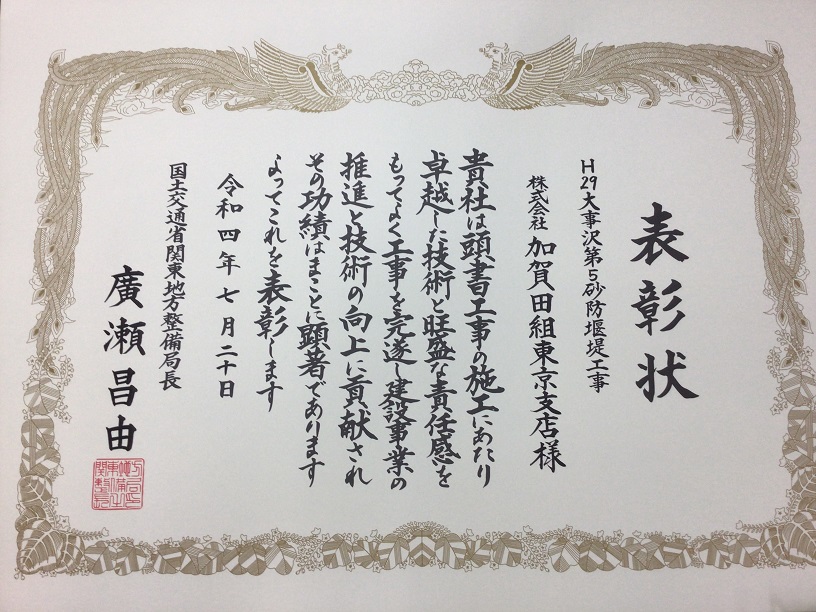 表彰状
H29大事沢第5砂防堰堤工事
株式会社 加賀田組東京支店様
貴社は頭書工事の施工にあたり
卓越した技術と旺盛な責任感を
もってよく工事を完遂し建設事業の
推進と技術の向上に貢献され
その功績はまことに顕著であります
よってこれを表彰します
令和四年七月二十日
国土交通省関東地方整備局長
廣瀬昌由